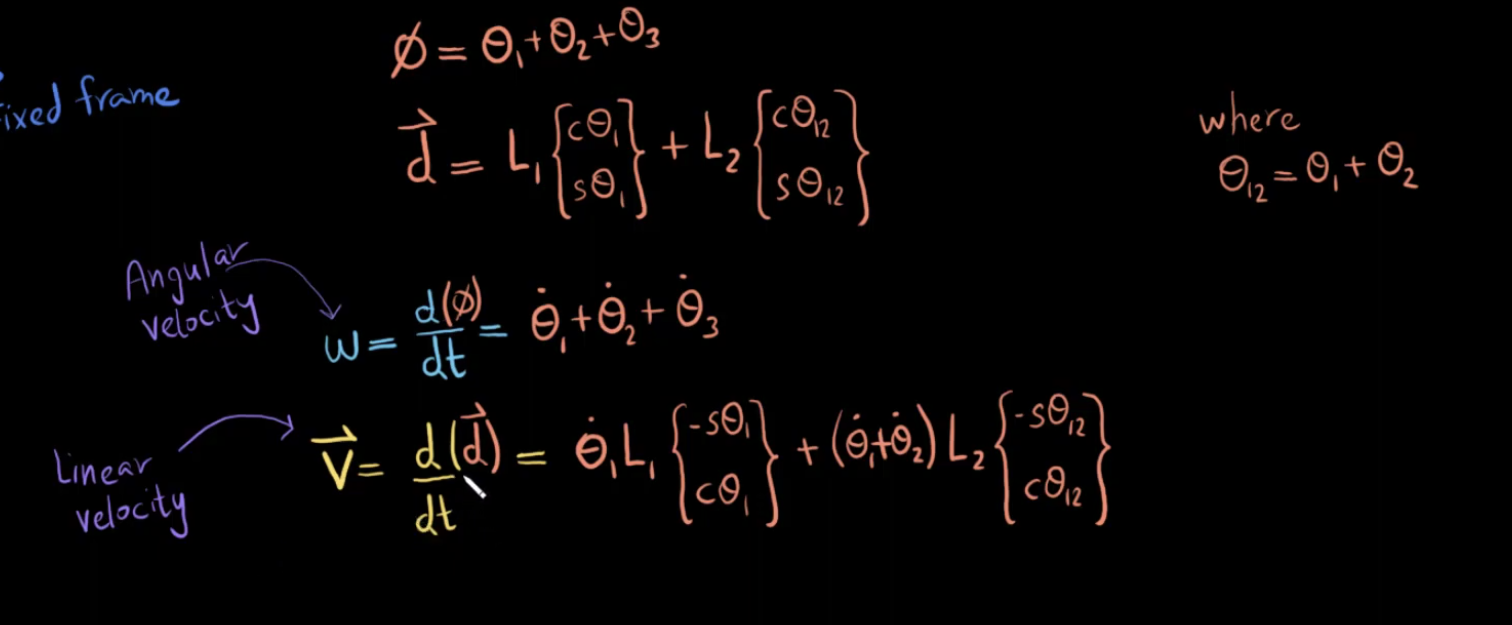 ϕ = θ₁ + θ₂ + θ₃
ixed frame
d⃗ = L₁ {cθ₁ sθ₁} + L₂ {cθ₁₂ sθ₁₂}
where
θ₁₂ = θ₁ + θ₂
Angular
velocity
w = d(ϕ)/dt = θ̇₁ + θ̇₂ + θ̇₃
Linear
velocity
V⃗ = d(d⃗)/dt = θ̇₁L₁ {-sθ₁ cθ₁} + (θ̇₁+θ̇₂) L₂ {-sθ₁₂ cθ₁₂}